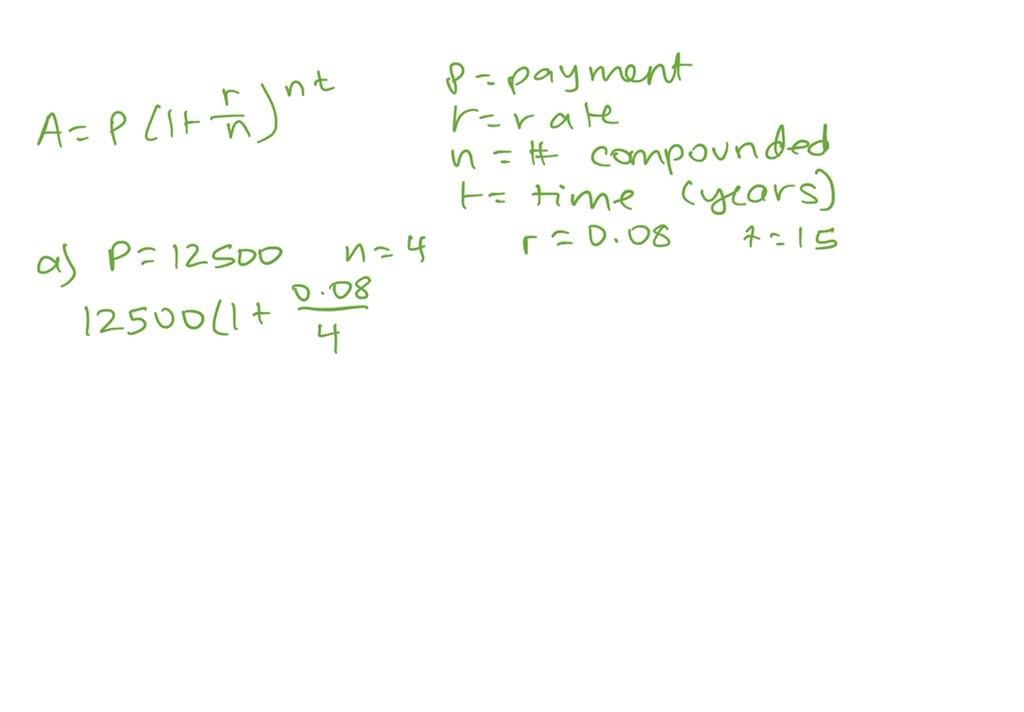 A = P (1 + r/n)^nt
P = payment
r = rate
n = # compounded
t = time (years)
a) P = 12500 n = 4 r = 0.08 t = 15
12500 (1 + 0.08/4